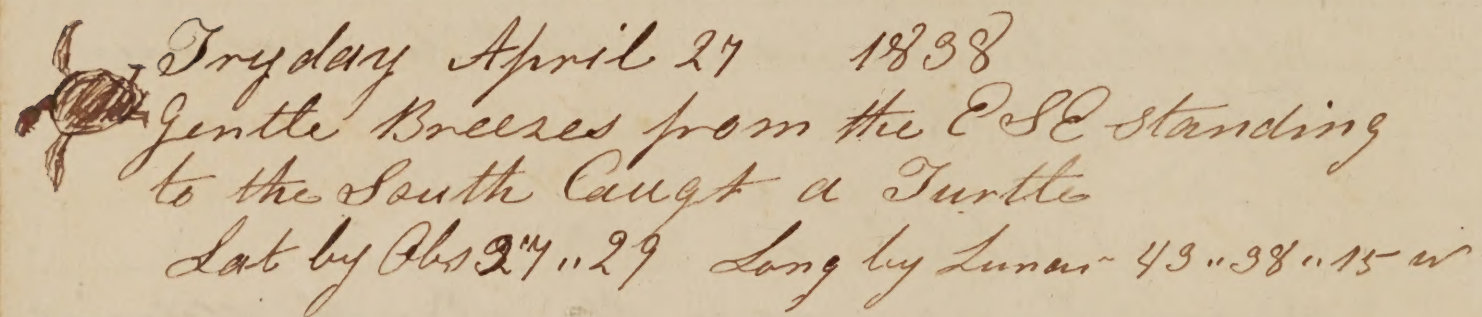 Fryday April 27 1838
Gentle Breezes from the ESE standing
to the South Caugt a Turtle
Lat by Obs 37"29 Long by Lunar 43"38"15 W